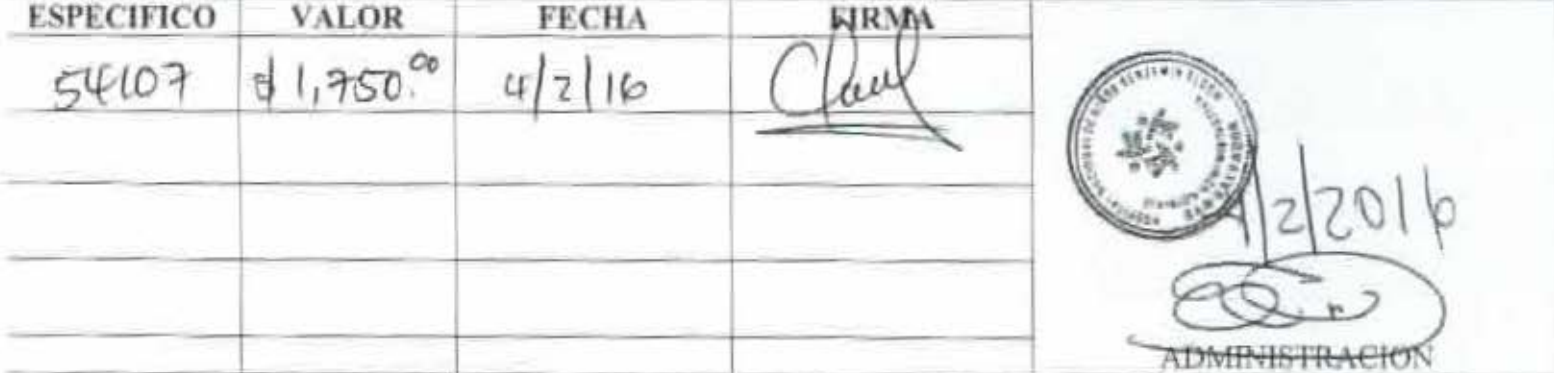 ESPECIFICO VALOR FECHA FIRMA
54107 $1,750.00 4/2/16
4/2/2016
ADMINISTRACION